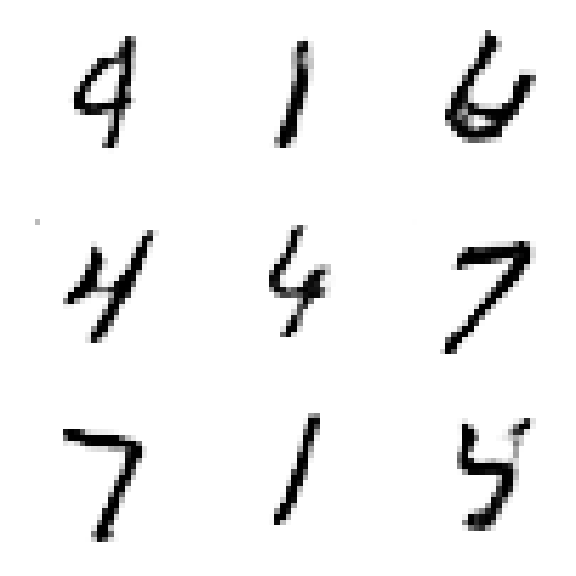 9 1 6
4 4 7
7 1 5